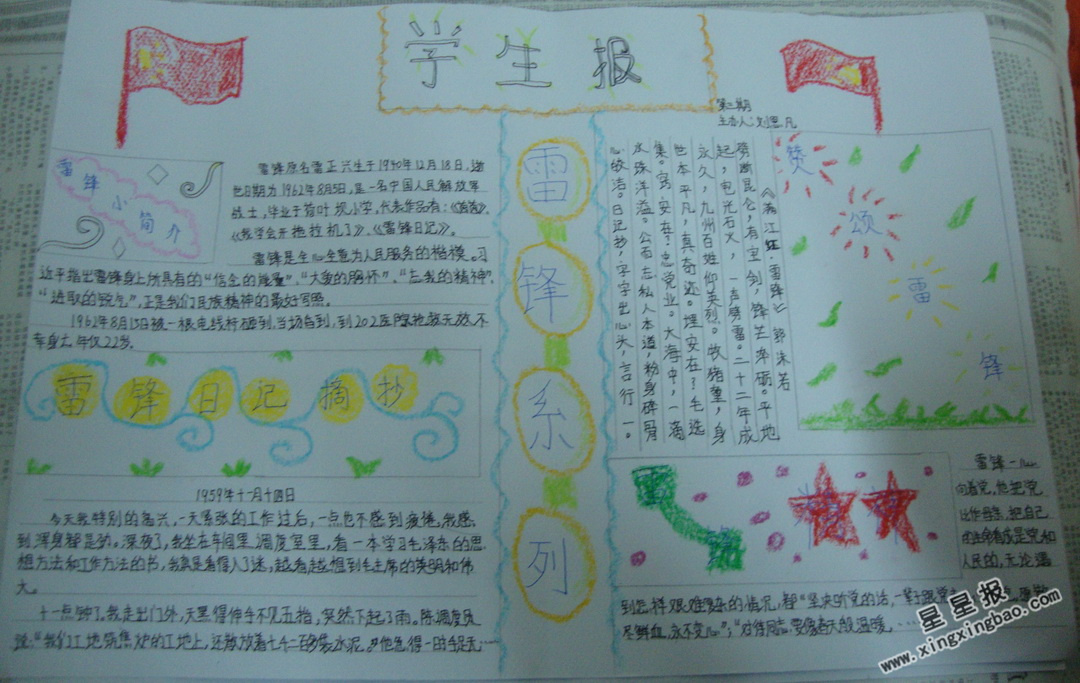 学生报
第一期
主办人:刘思凡
雷锋系列
雷锋
小简介
雷锋原名雷正兴生于1940年12月18日,逝
世日期为1962年8月5日,是一名中国人民解放军
战士,毕业于荷叶坝小学,代表作品有:
《我学会开拖拉机了》、《雷锋日记》。
雷锋是全心全意为人民服务的楷模。习
近平指出雷锋身上所具有的“信念的能量”、“大爱的胸怀”、“忘我的精神”、
“进取的锐气”,正是我们民族精神的最好写照。
1962年8月15日被一根电线杆砸到,当场昏到,到202医院抢救无效不
幸身亡,年仅22岁。
雷锋日记摘抄
1959年十一月十四日
今天我特别的高兴,一天紧张的工作过后,一点也不感到疲倦,我感
到浑身都是劲。深夜了,我坐在车间里调度室里,看一本学习毛泽东的思
想方法和工作方法的书,我真是看得入了迷,越看越想到毛主席的英明和伟
大。
十一点钟了,我走出门外,天黑得伸手不见五指,突然下起了雨。陈调度员
说:“我们工地筑焦炉的工地上,还散放着七千二百多袋水泥。”他急得一时手足无…
赞颂雷锋
《满江红·雷锋》 郭沫若
劈断昆仑,有宝剑,锋芒淬砺。平地
起,电光石火,一声劈雷。二十二年成
永久,九州百姓仰英烈。牧猪奴,身
世本平凡,真奇迹。埋安在?毛选
集。窍安在?忠党业。大海中,一滴
水珠洋溢。公而忘私人本道,粉身碎骨
心皎洁。日记抄,字字出心头,言行一。
雷锋一心
向着党,他把党
比作母亲,把自己
的生命看成是党和
人民的,无论遇
到怎样艰难
的情况,都“坚决听党的话,一辈子跟党
尽鲜血,永不变心”;“对待同志要像春天般温暖,…
星星报
www.xingxingbao.com